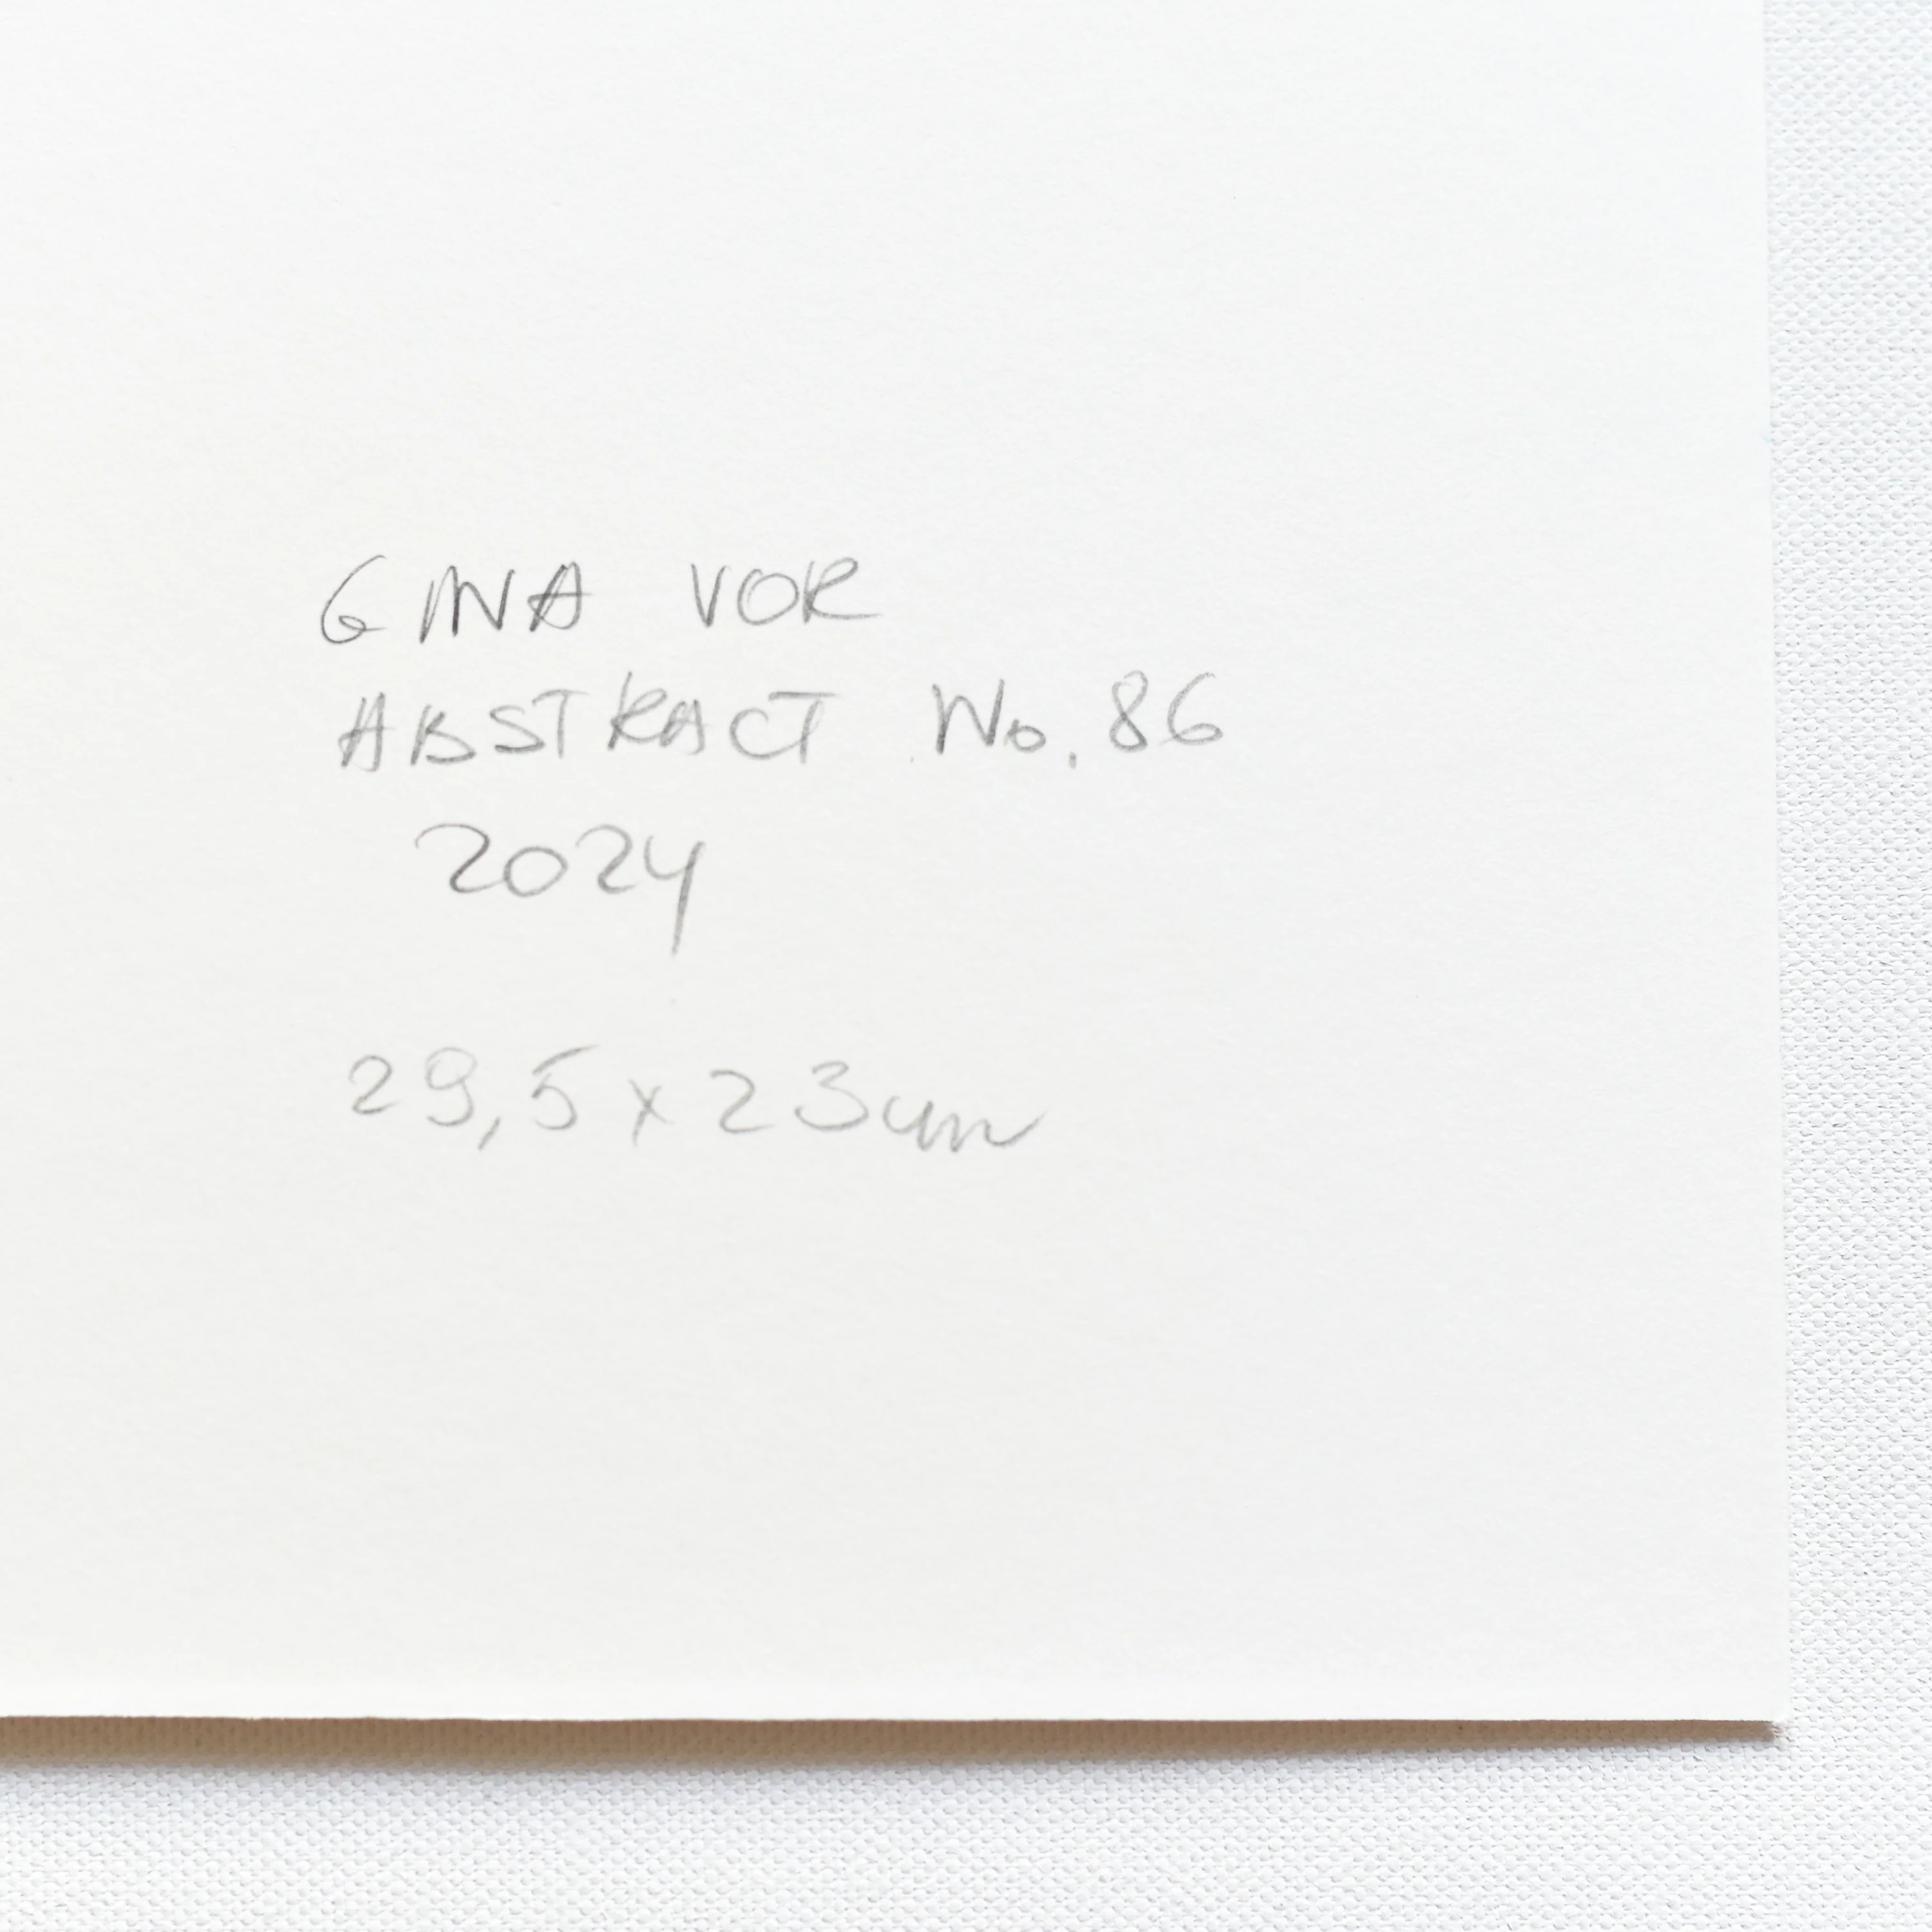 GINA VOR
ABSTRACT No. 86
2024
29,5 x 23cm